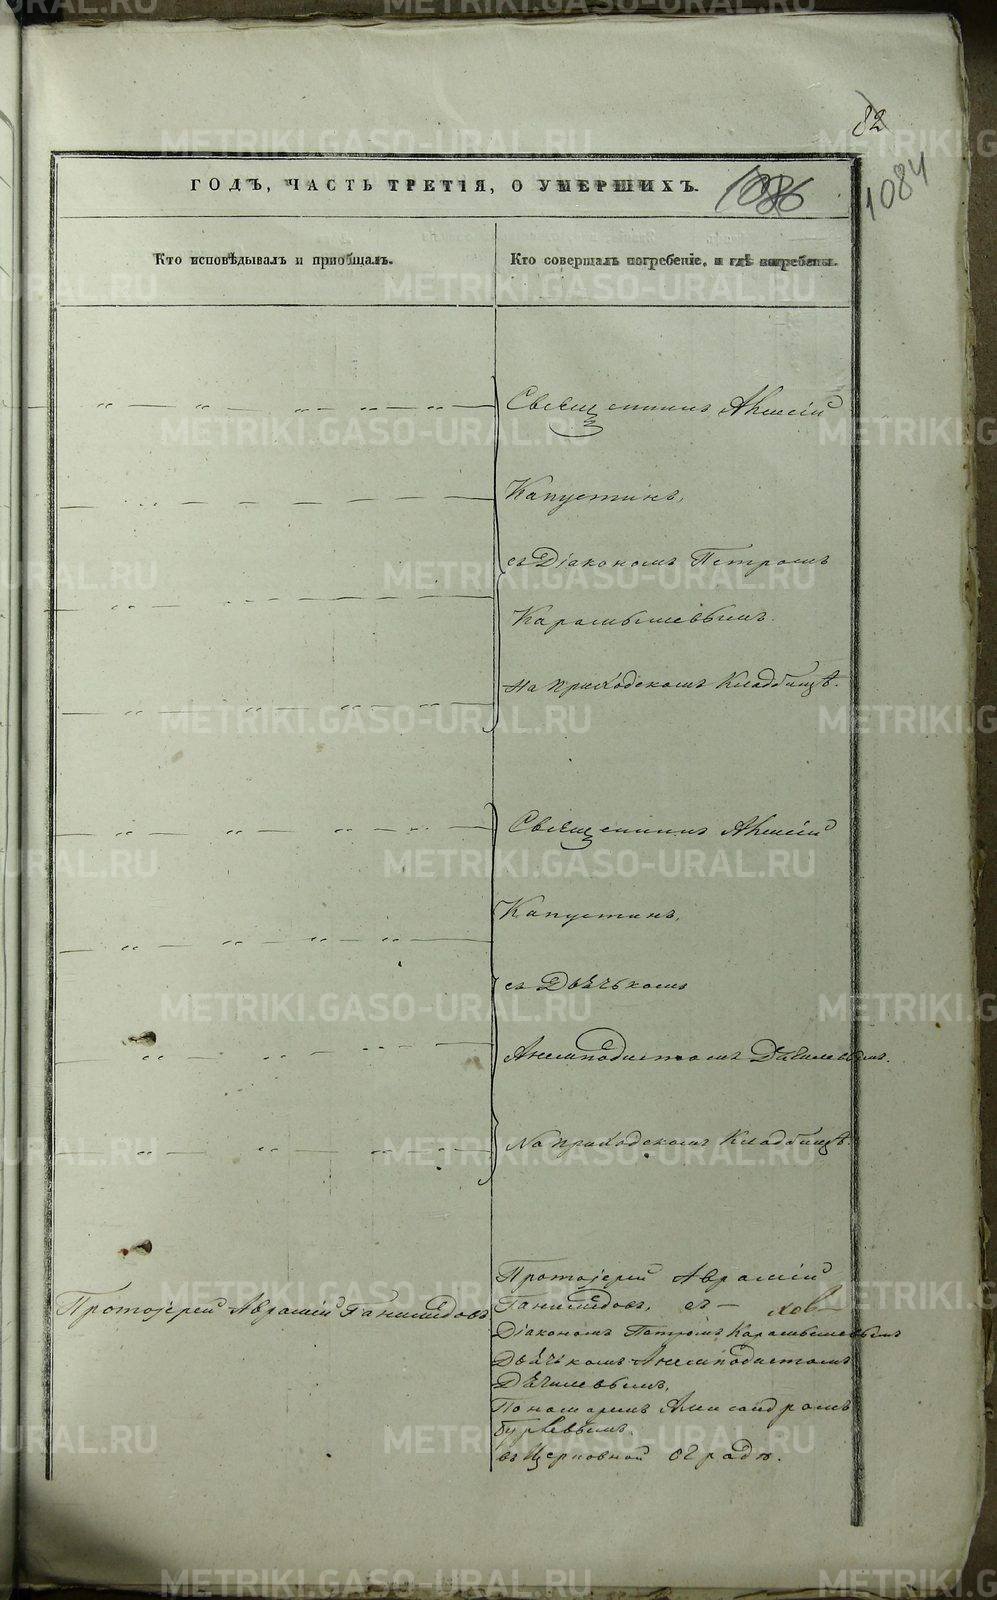 82
1084
ГОДЪ, ЧАСТЬ ТРЕТІЯ, О УМЕРШИХЪ.
1086
Кто исповѣдывалъ и пріобщалъ.
Кто совершалъ погребеніе, и гдѣ погребены.
Священникъ Алексій
Капустинъ,
съ Діакономъ Петромъ
Карамышевымъ.
На приходскомъ Кладбищѣ.
Священникъ Алексій
Капустинъ,
съ Дьячькомъ
Анемподистомъ
На приходскомъ Кладбищѣ
Протоіерей Аврамій Ганимедовъ
Протоіерей Аврамій
Ганимедовъ, съ —
Діакономъ Петромъ Карамышевымъ
Дьячькомъ Анемподистомъ
Пономаремъ Александромъ
въ Церковной оградѣ.
METRIKI.GASO-URAL.RU